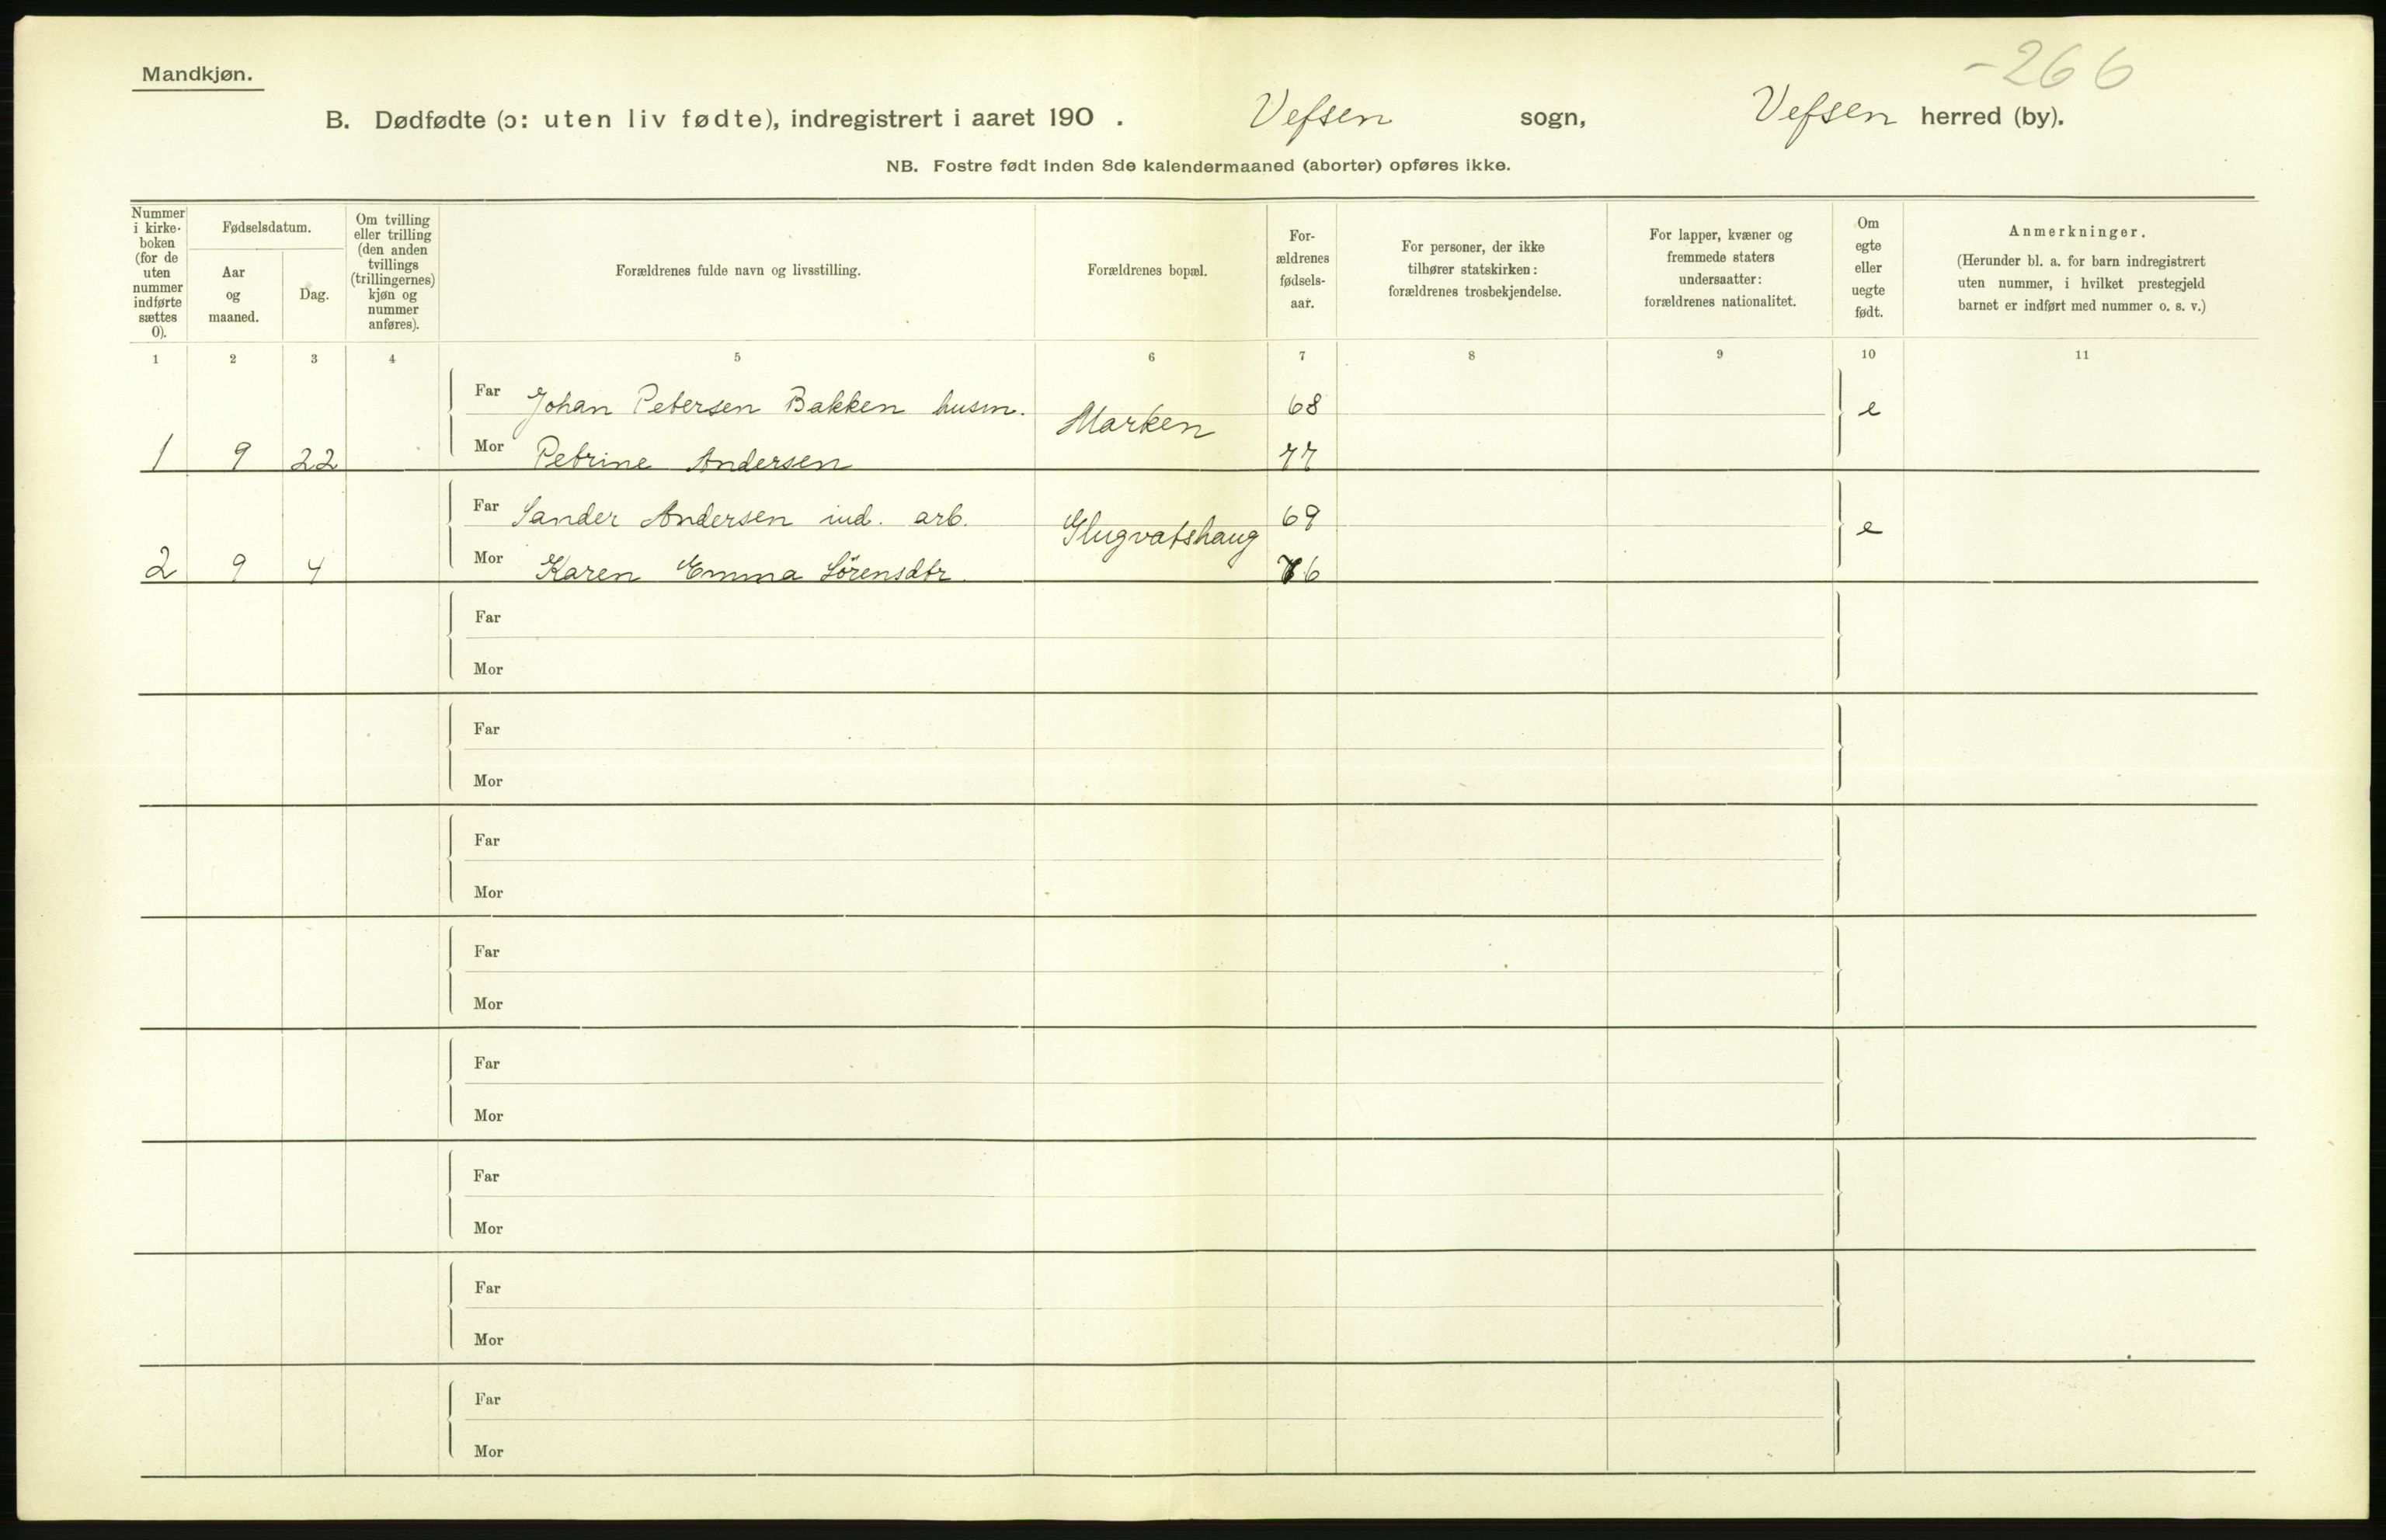 -266
Mandkjøn.
B. Dødfødte (ɔ: uten liv fødte), indregistrert i aaret 190 . Vefsen sogn, Vefsen herred (by).
NB. Fostre født inden 8de kalendermaaned (aborter) opføres ikke.
Nummer i kirke-boken (for de uten nummer indførte sættes 0).
Fødselsdatum.
Aar og maaned.
Dag.
Om tvilling eller trilling (den anden tvillings (trillingernes) kjøn og nummer anføres).
Forældrenes fulde navn og livsstilling.
Forældrenes bopæl.
For-ældrenes fødsels-aar.
For personer, der ikke tilhører statskirken: forældrenes trosbekjendelse.
For lapper, kvæner og fremmede staters undersaatter: forældrenes nationalitet.
Om egte eller uegte født.
Anmerkninger.
(Herunder bl. a. for barn indregistrert uten nummer, i hvilket prestegjeld barnet er indført med nummer o. s. v.)
1 2 3 4 5 6 7 8 9 10 11
Far Johan Petersen Bakken husm. Marken 68 e
1 9 22 Mor Petrine Andersen 77
Far Sander Andersen ind. arb. Glugvatshaug 69 e
2 9 4 Mor Karen Emma Sörensdtr. 76
Far
Mor
Far
Mor
Far
Mor
Far
Mor
Far
Mor
Far
Mor
Far
Mor
Far
Mor